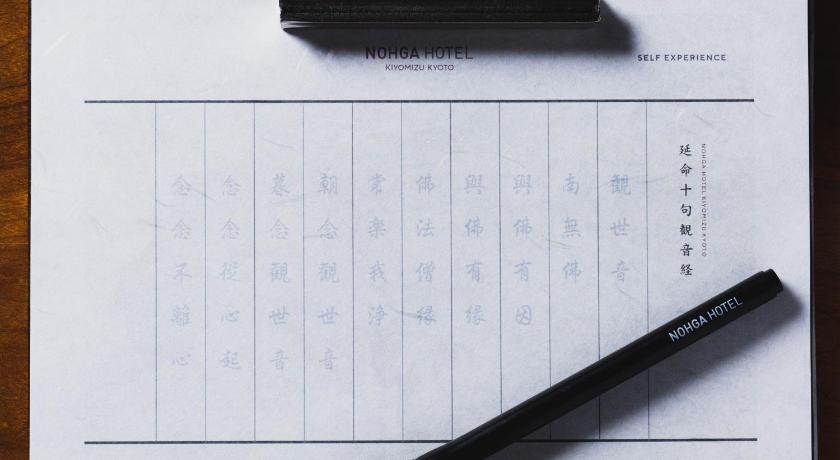 NOHGA HOTEL
KIYOMIZU KYOTO
SELF EXPERIENCE
NOHGA HOTEL KIYOMIZU KYOTO
延命十句観音経
観世音
南無佛
與佛有因
與佛有縁
佛法僧縁
常楽我浄
朝念観世音
暮念観世音
念念従心起
念念不離心
NOHGA HOTEL